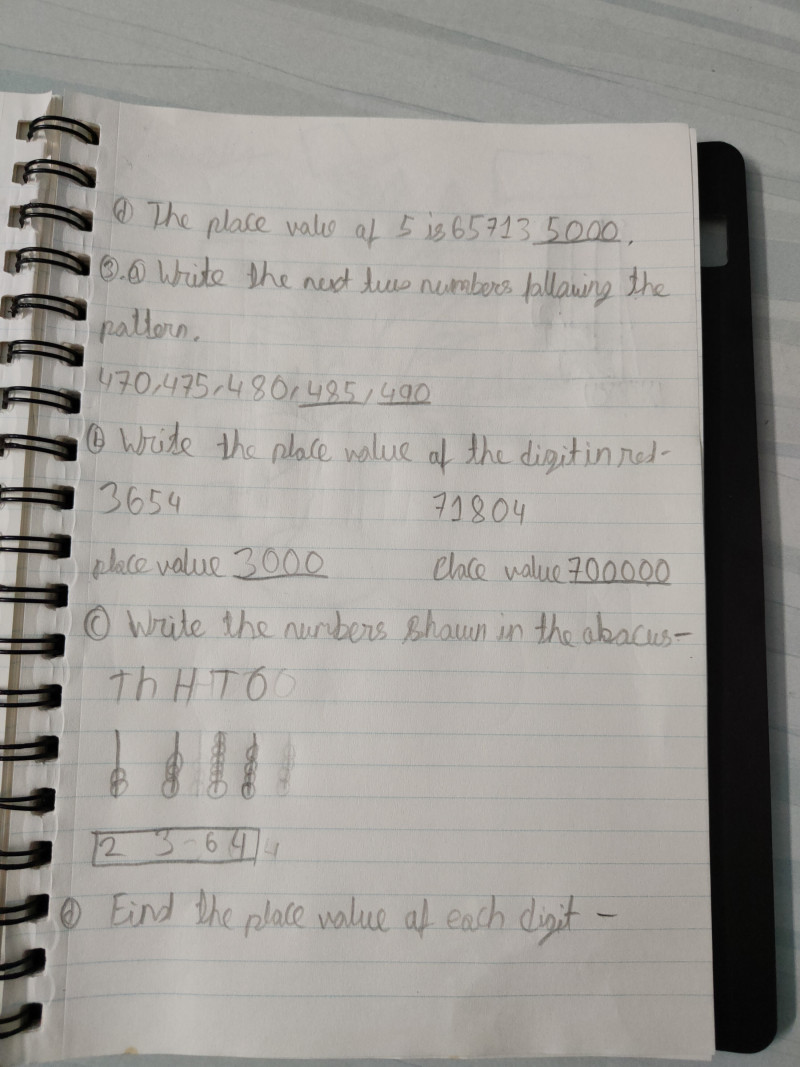 (d) The place value of 5 is 65713 5000.
(3).(a) Write the next two numbers following the
pattern.
470,475,480,485,490
(b) Write the place value of the digit in red-
3654 71804
place value 3000 Place value 700000
(c) Write the numbers shown in the abacus-
Th H T O
2 3 6 4
(d) Find the place value of each digit -